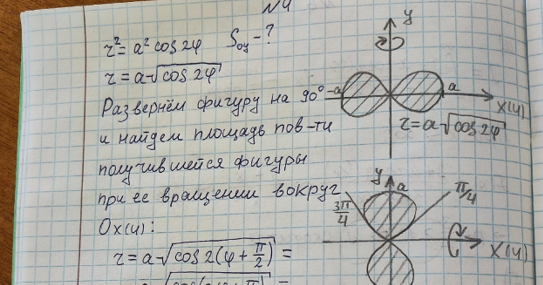 N4
r² = a² cos 2φ   S_оу - ?
r = a√cos 2φ
Развернём фигуру на 90°
и найдем площадь пов-ти
получившейся фигуры
при ее вращении вокруг
Ox(y):
r = a√cos 2(φ + π/2) =
y
-a
a
x(y)
r = a√cos 2φ
y
a
3π/4
π/4
x(y)